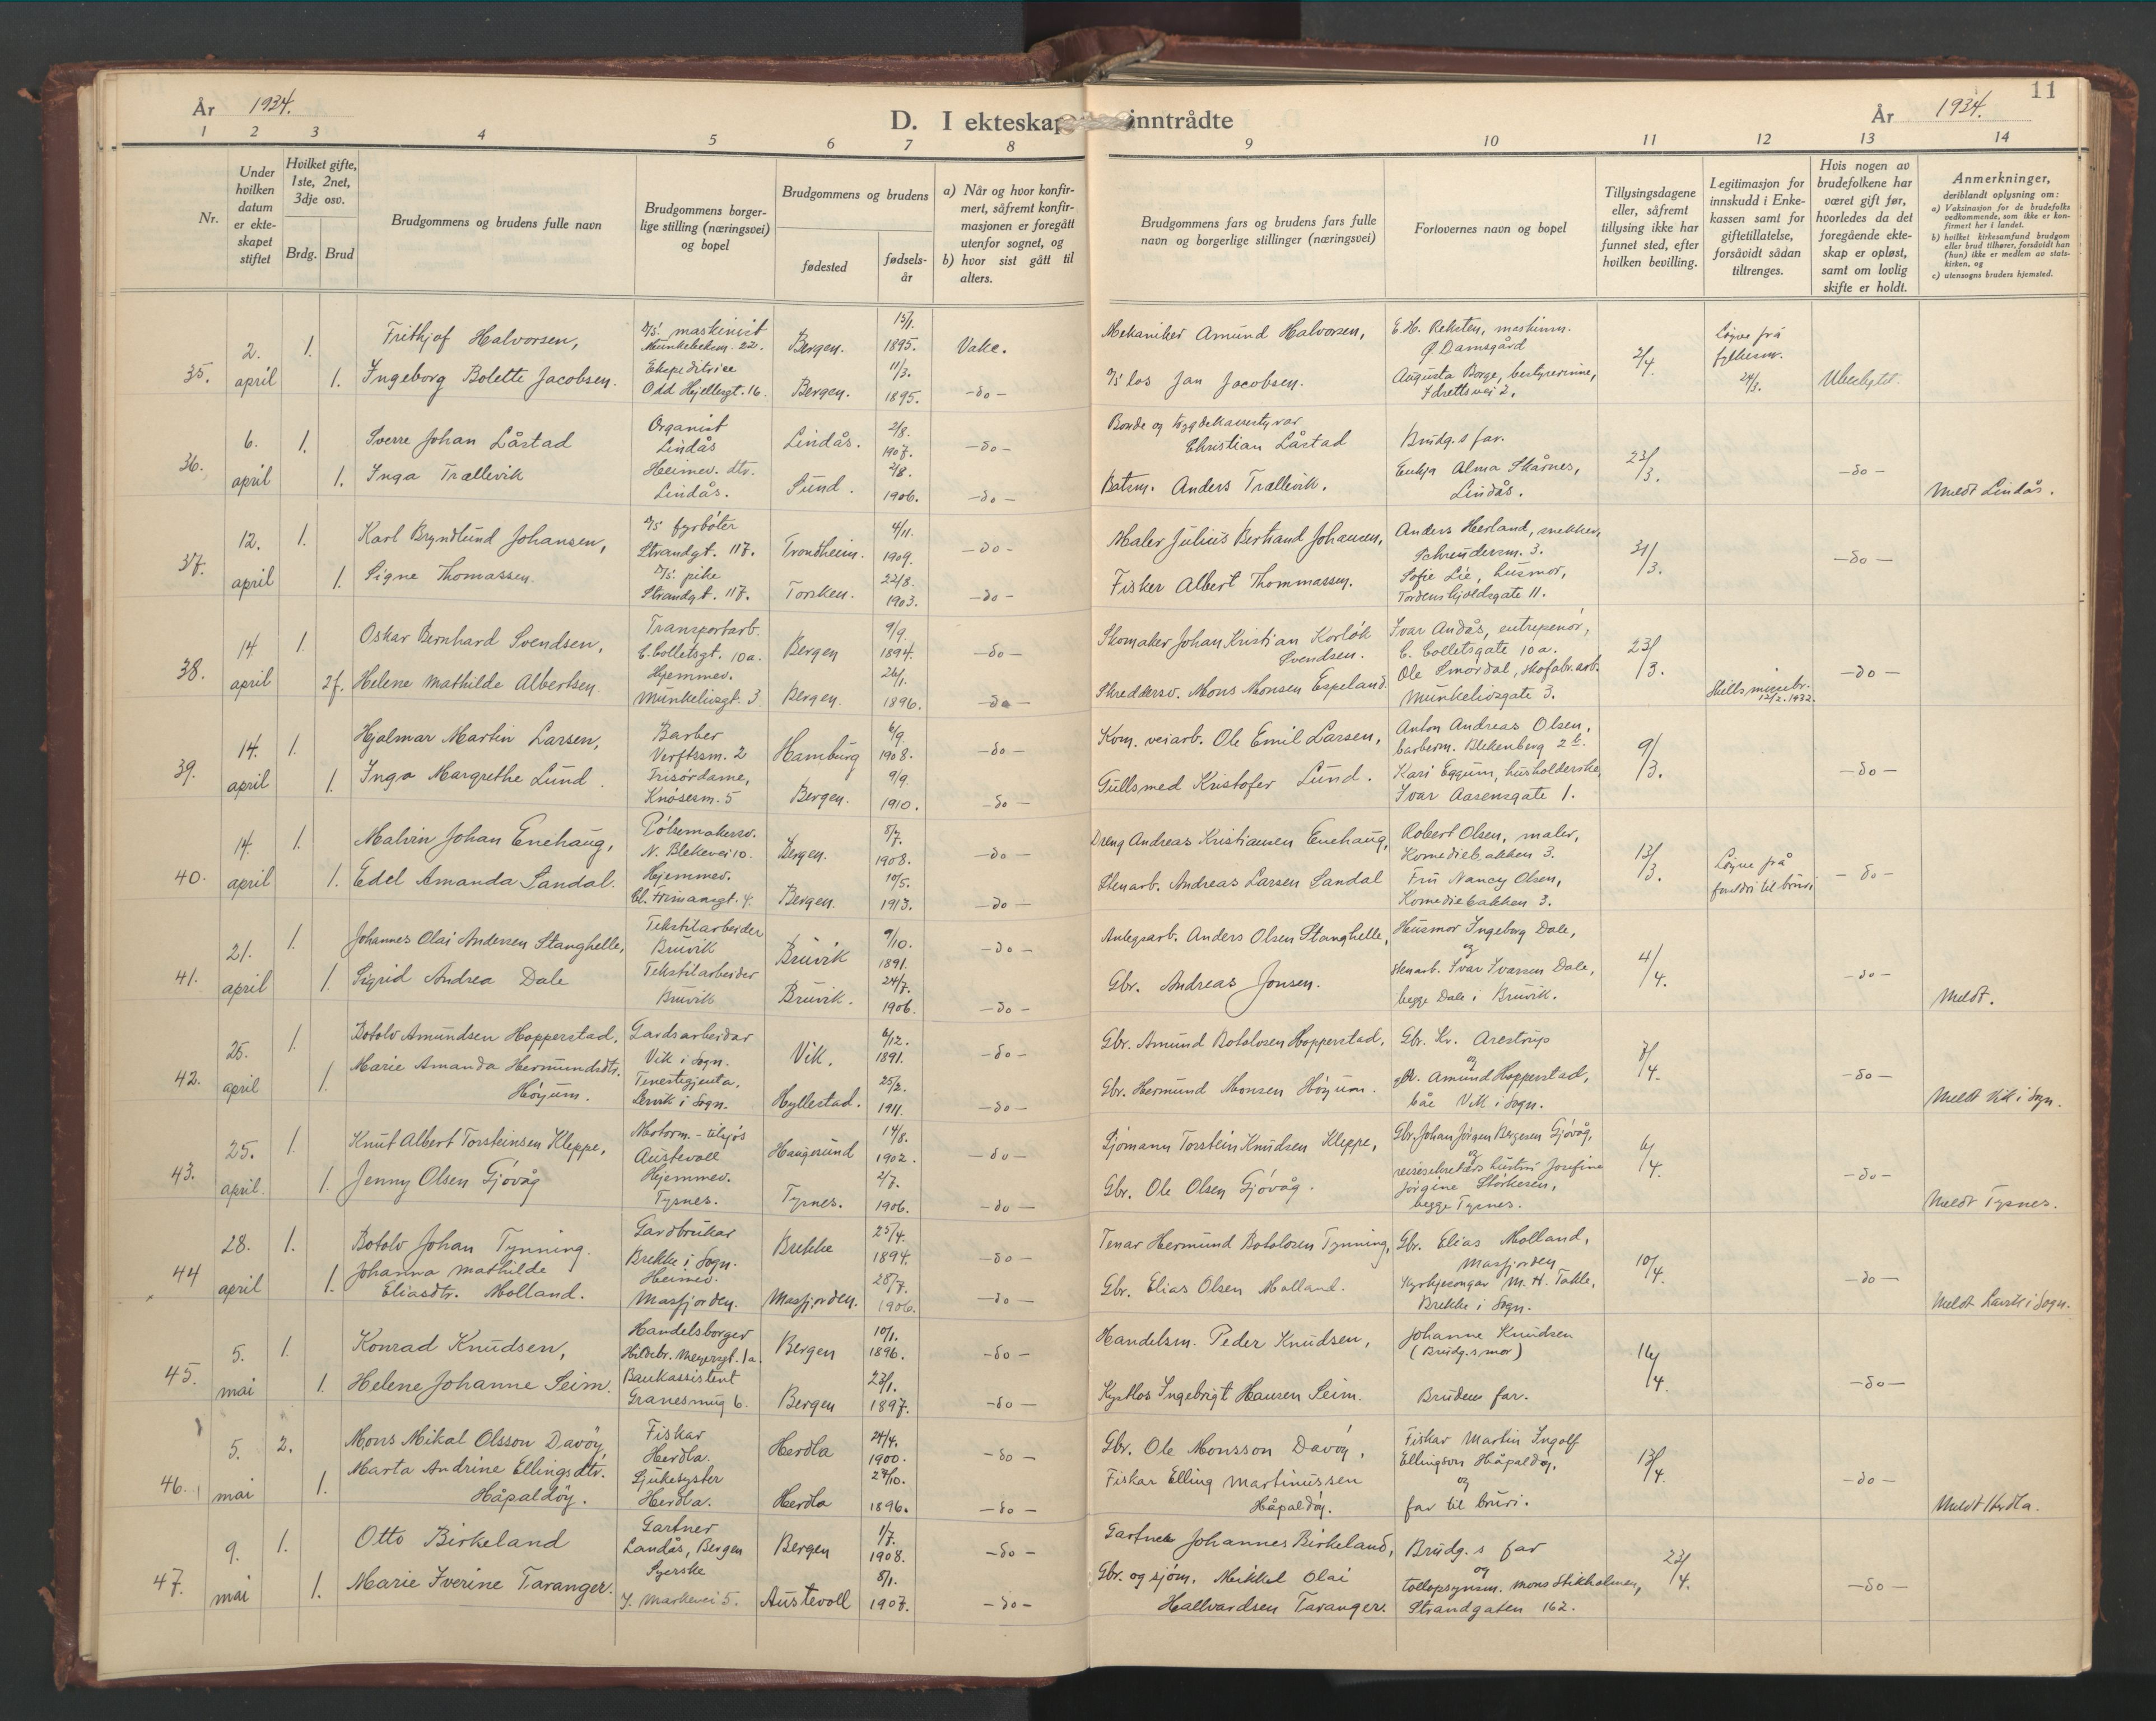 11
År 1934.
D. I ekteskap inntrådte
År 1934.
1 2 3 4 5 6 7 8 9 10 11 12 13 14
Nr.
Under hvilken datum er ekte- skapet stiftet
Hvilket gifte, 1ste, 2net, 3dje osv.
Brdg. Brud
Brudgommens og brudens fulle navn
Brudgommens borger- lige stilling (næringsvei) og bopel
Brudgommens og brudens
fødested
fødsels- år
a) Når og hvor konfir- mert, såfremt konfir- masjonen er foregått utenfor sognet, og
b) hvor sist gått til alters.
Brudgommens fars og brudens fars fulle navn og borgerlige stillinger (næringsvei)
Forlovernes navn og bopel
Tillysingsdagene eller, såfremt tillysing ikke har funnet sted, efter hvilken bevilling.
Legitimasjon for innskudd i Enke- kassen samt for giftetillatelse, forsåvidt sådan tiltrenges.
Hvis nogen av brudefolkene har været gift før, hvorledes da det foregående ekte- skap er opløst, samt om lovlig skifte er holdt.
Anmerkninger, deriblandt oplysning om:
a) Vaksinasjon for de brudefolks vedkommende, som ikke er kon- firmert her i landet.
b) hvilket kirkesamfund brudgom eller brud tilhører, forsåvidt han (hun) ikke er medlem av stats- kirken, og
c) utensogns bruders hjemsted.
35. 2. april 1. Frithjof Halvorsen, maskinist 22. Bergen. 15/1. 1895. Vake. Mekaniker Amund Halvorsen, E.H. Reksten, maskinm. Ø Damsgård 2/4. Løyve frå fylkesm. 24/3.
1. Ingeborg Bolette Jacobsen. Ekspeditrise Odd Hjellegt. 16. Bergen. 11/3. 1895. -do- los Jan Jacobsen. Augusta Borge, bestyrerinne, Idrettsvei 2. Ubeskytet.
36. 6. april 1. Sverre Johan Låstad Organist Lindås Lindås. 2/8. 1907. -do- Bonde og trygdekassestyrar Christian Låstad Brudg.s far. 23/3. -do-
1. Inga Trællevik Heimev. dtr. Lindås. Sund. 2/8. 1906. -do- Batsm. Anders Trællevik. Enkja Alma Skårnes, Lindås. Meldt Lindås.
37. 12. april 1. Karl Bryndlund Johansen, fyrbøter Strandgt. 117. Trondheim. 4/11. 1909. -do- Maler Julius Bertrand Johansen, Anders Herland, snekker, Schreudersm. 3. 31/3. -do-
1. Signe Thomassen. pike Strandgt. 117. Torsken. 22/8. 1903. -do- Fisker Albert Thommassen. Sofie Lie, husmor, Tordenskjoldsgate 11.
38. 14 april 1. Oskar Bernhard Svendsen, Transportarb. C. Colletsgt. 10a. Bergen 9/9. 1894. -do- Skomaker Johan Kristian Korløk Svendsen. Ivar Andås, entrepenør, C. Colletsgate 10a. 23/3. -do-
2f. Helene Mathilde Albertsen. Hjemmev. Munkelivsgt. 3 Bergen. 26/1. 1896. -do- Skreddersv. Mons Monsen Espeland. Ole Smørdal, skofabr.arb. Munkelivsgate 3. 12/2. 1932.
39. 14. april 1. Hjalmar Martin Larsen, Barber Verftsm. 2 Hamburg 6/9. 1908. -do- Kom. veiarb. Ole Emil Larsen, Anton Andreas Olsen, barberm. Blekenberg 2 b. 9/3. -do-
1. Inga Margrethe Lund. Frisørdame, Knøsesm. 5 Bergen. 9/9. 1910. -do- Gullsmed Kristofer Lund. Kari Eggum, husholderske, Ivar Aasensgate 1.
40. 14. april 1. Malvin Johan Enehaug, Pølsemakersv. N. Blekevei 10. Bergen. 8/7. 1908. -do- Dreng Andreas Kristiansen Enehaug, Robert Olsen, maler, Komediebakken 3. 13/3. Løyve frå foreldri til bruri -do-
1. Edel Amanda Sandal. Hjemmev. Cl. Frimansgt. 4. Bergen. 10/5. 1913. -do- Stenarb. Andreas Larsen Sandal Fru Nancy Olsen, Komediebakken 3.
41. 21. april 1. Johannes Olai Andersen Stanghelle, Tekstilarbeider Bruvik Bruvik 9/10. 1891. -do- Anlegsarb. Anders Olsen Stanghelle, Husmor Ingeborg Dale, og 4/4. -do-
1. Sigrid Andrea Dale Tekstilarbeider Bruvik Bruvik. 24/7. 1906. -do- Gbr. Andreas Jonsen. stenarb. Ivar Ivarsen Dale, begge Dale i Bruvik. Meldt.
42. 25. april 1. Botolv Amundsen Hopperstad, Gardsarbeidar Vik i Sogn. Vik. 6/12. 1891. -do- Gbr. Amund Botolvsen Hopperstad, Gbr. Kr. Arestrup og 7/4. -do-
1. Marie Amanda Hermundsdtr. Høyum. Tenestgjenta, Lervik i Sogn. Hyllestad. 25/2. 1911. -do- Gbr. Hermund Monsen Høyum. gbr. Amund Hopperstad, båe Vik i Sogn. Meldt Vik i Sogn.
43. 25. april. 1. Knut Albert Torsteinsen Kleppe, Motorm. - tilsjøs Austevoll Haugesund 14/8. 1902. -do- Sjømann Torstein Knudsen Kleppe, Gbr. Johan Jørgen Bergesen Gjøvåg, og 6/4. -do-
1. Jenny Olsen Gjøvåg Hjemmev. Tysnes. Tysnes. 2/7. 1906. -do- Gbr. Ole Olsen Gjøvåg. reisesekretærs hustru Josefine Jørgine Storkesen, begge Tysnes. Meldt Tysnes.
44 28. april 1. Botolv Johan Tynning. Gardbrukar Brekke i Sogn. Brekke 25/4. 1894. -do- Tenar Hermund Botolvsen Tynning, Gbr. Elias Molland, Masfjorden 10/4. -do-
1. Johanna Mathilde Eliasdtr. Molland. Heimev. Masfjorden. Masfjorden. 28/7. 1906. -do- Gbr. Elias Olsen Molland. Kyrkjesongar M. H. Takle, Brekke i Sogn. Meldt Lavik i Sogn.
45. 5. mai 1. Konrad Knudsen, Handelsborger Hildebr. Meyersgt. 1a. Bergen 10/1. 1896. -do- Handelsm. Peder Knudsen, Johanne Knudsen (Brudg.s mor) 16/4. -do-
1. Helene Johanne Seim. Bankassistent Granesmug 6. Bergen 23/1. 1897. -do- Kystlos Ingebrigt Hansen Seim. Brudens far.
46. 5. mai 2. Mons Mikal Olsson Davøy, Fiskar Herdla. Herdla 24/4. 1900. -do- Gbr. Ole Monsson Davøy, Fiskar Martin Ingolf Ellingson Håpaldøy, og 13/4. -do-
1. Marta Andrine Ellingsdtr. Håpaldøy. Sjukesyster Herdla. Herdla 27/10. 1896. -do- Fiskar Elling Martinussen Håpaldøy. far til bruri. Meldt Herdla.
47. 9. mai 1. Otto Birkeland Gartner Landås, Bergen Bergen 1/7. 1908. -do- Gartner Johannes Birkeland, Brudg.s far og 23/4. -do-
1. Marie Iverine Taranger. Syerske J. Markevei 5. Austevoll 8/1. 1907. -do- Gbr. og sjøm. Mikkel Olai Hallvardsen Taranger. tollopsynsm. Mons Stikholmen, Strandgaten 162.